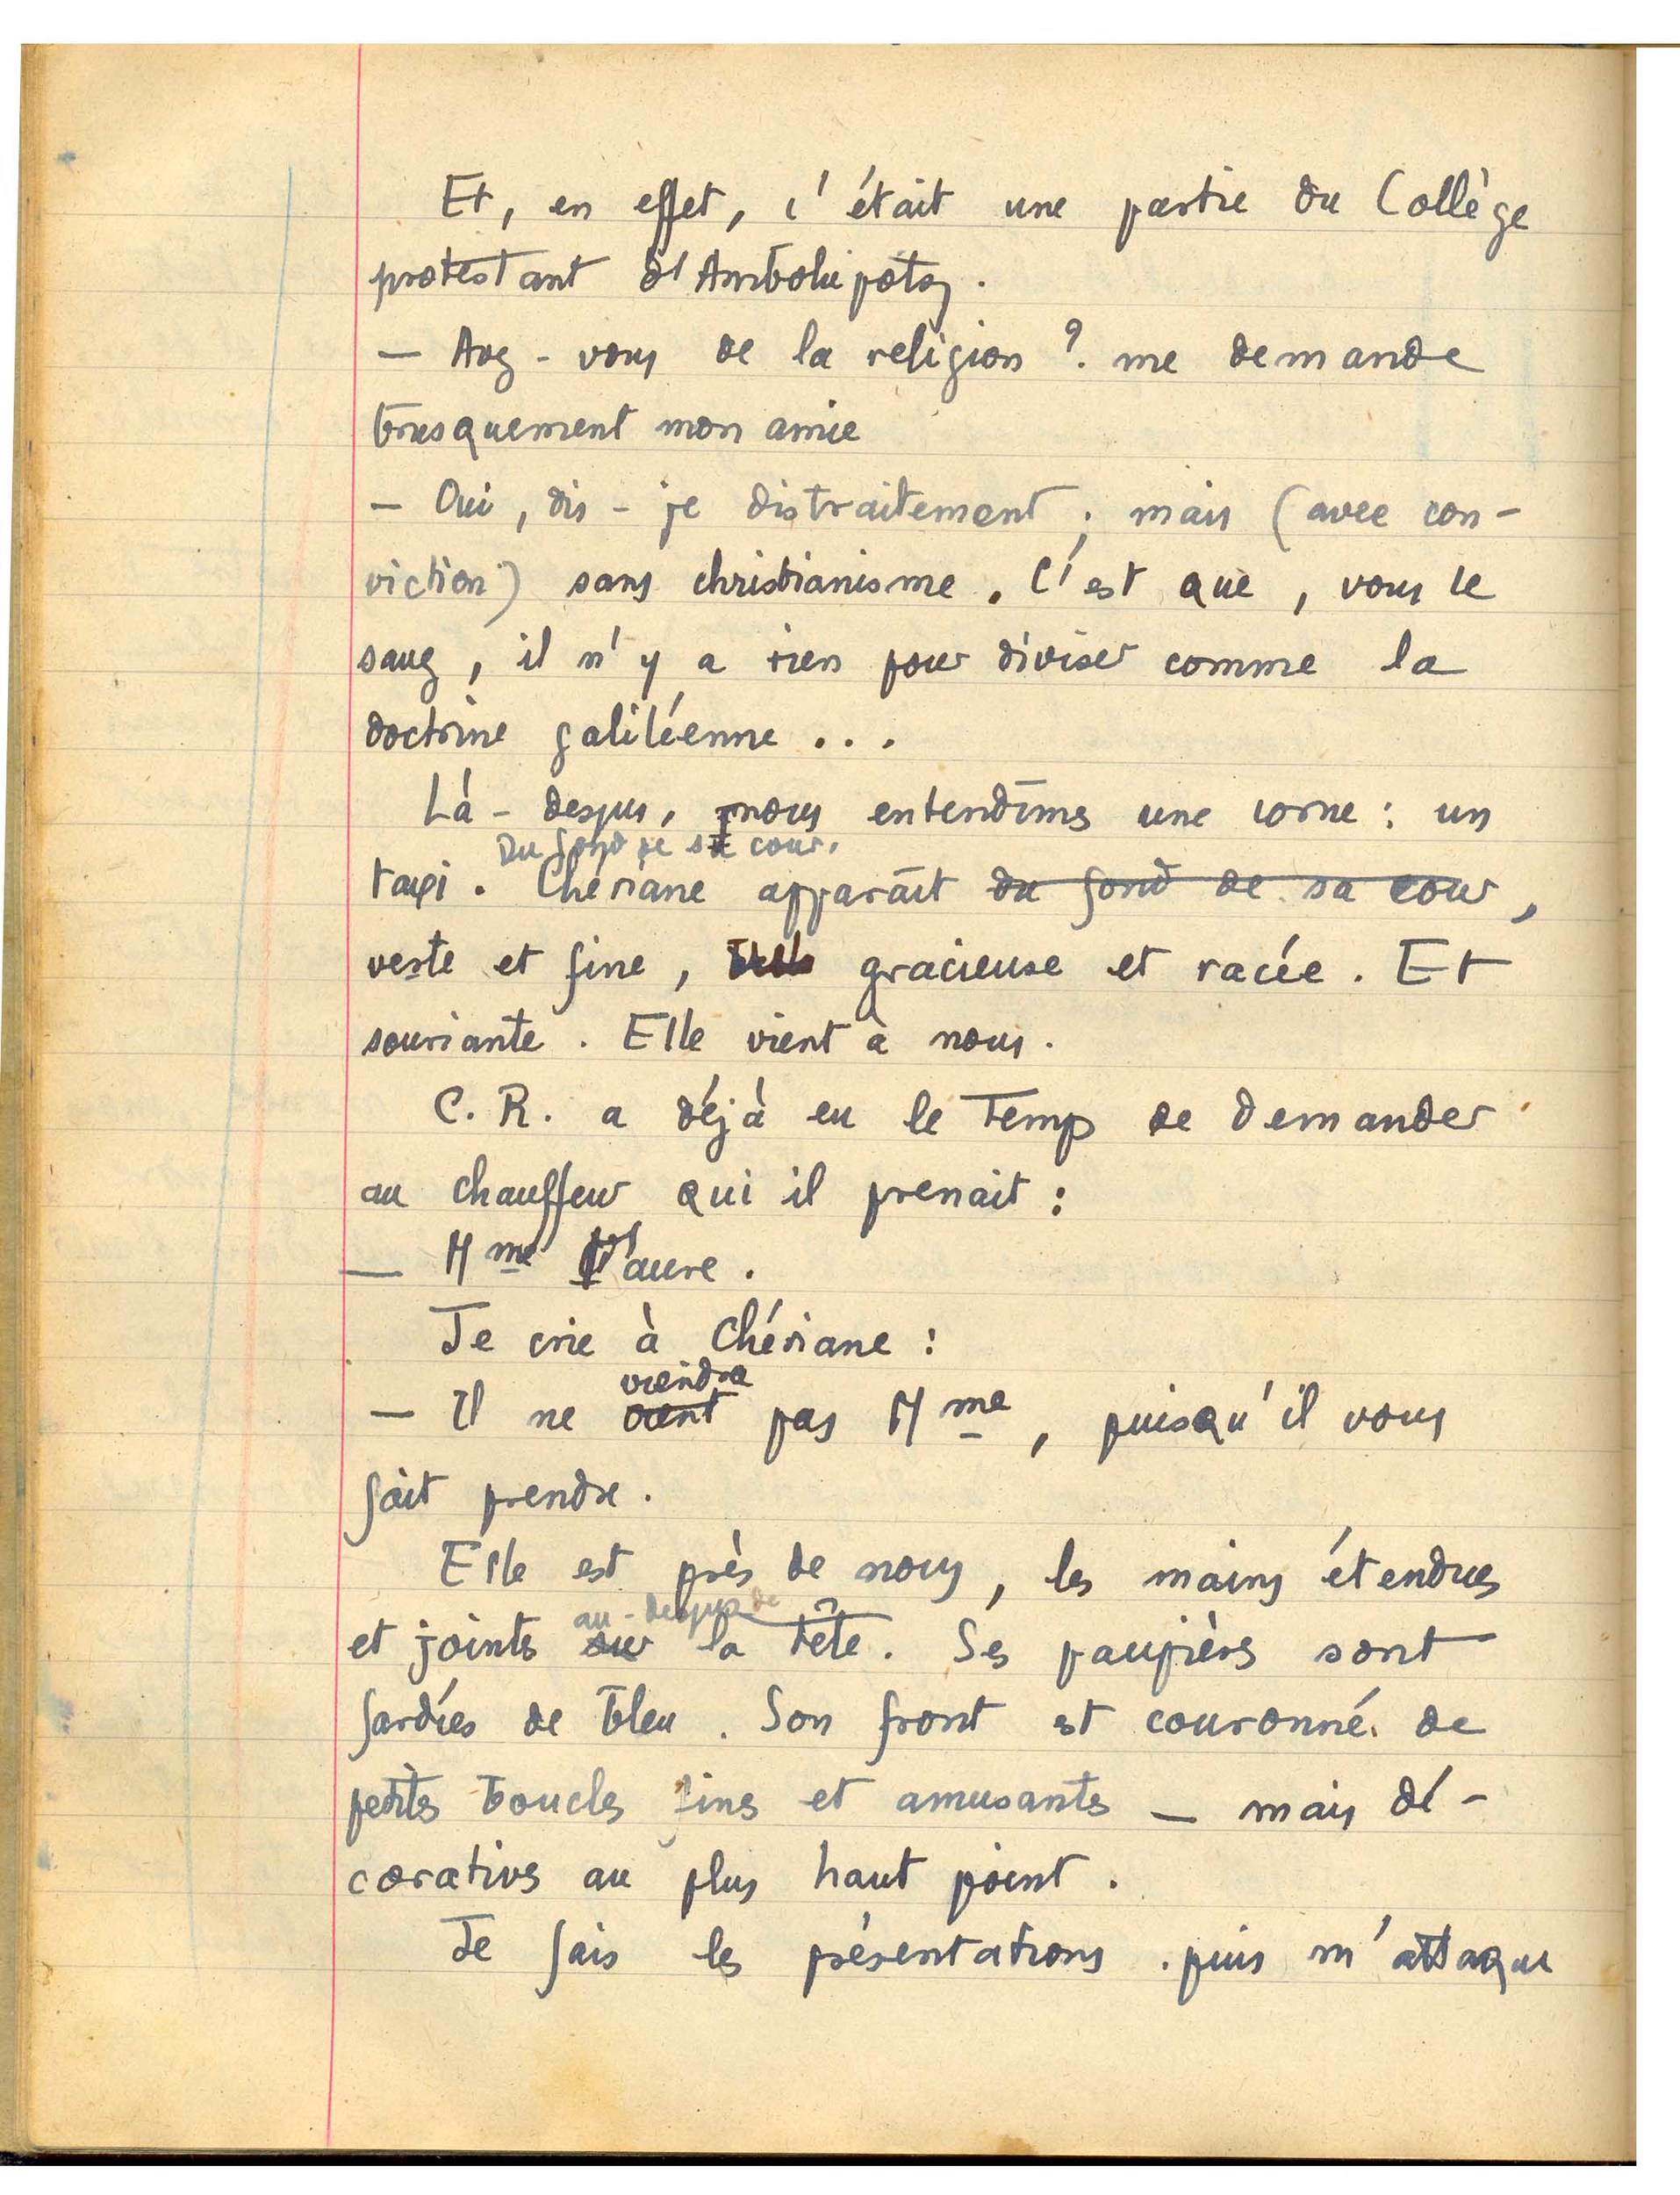 Et, en effet, c'était une partie du Collège
protestant d'Ambohipotsy.
— Avez-vous de la religion ? me demande
brusquement mon amie
— Oui, dis-je distraitement ; mais (avec con-
viction) sans christianisme. C'est que, vous le
savez, il n'y a rien pour diviser comme la
doctrine galiléenne...
Là-dessus, nous entendîmes une corne : un
Du fond de sa cour,
taxi. Chériane apparaît du fond de sa cour,
veste et fine, gracieuse et racée. Et
souriante. Elle vient à nous.
C. R. a déjà eu le temps de demander
au chauffeur qui il prenait :
— Mme Faure.
Je crie à Chériane :
viendra
— Il ne vient pas Mme, puisqu'il vous
fait prendre.
Elle est près de nous, les mains étendues
au-dessus de
et jointes sur la tête. Ses paupières sont
fardées de bleu. Son front est couronné de
petites boucles fines et amusantes — mais dé-
coratives au plus haut point.
Je fais les présentations. puis m'attaque